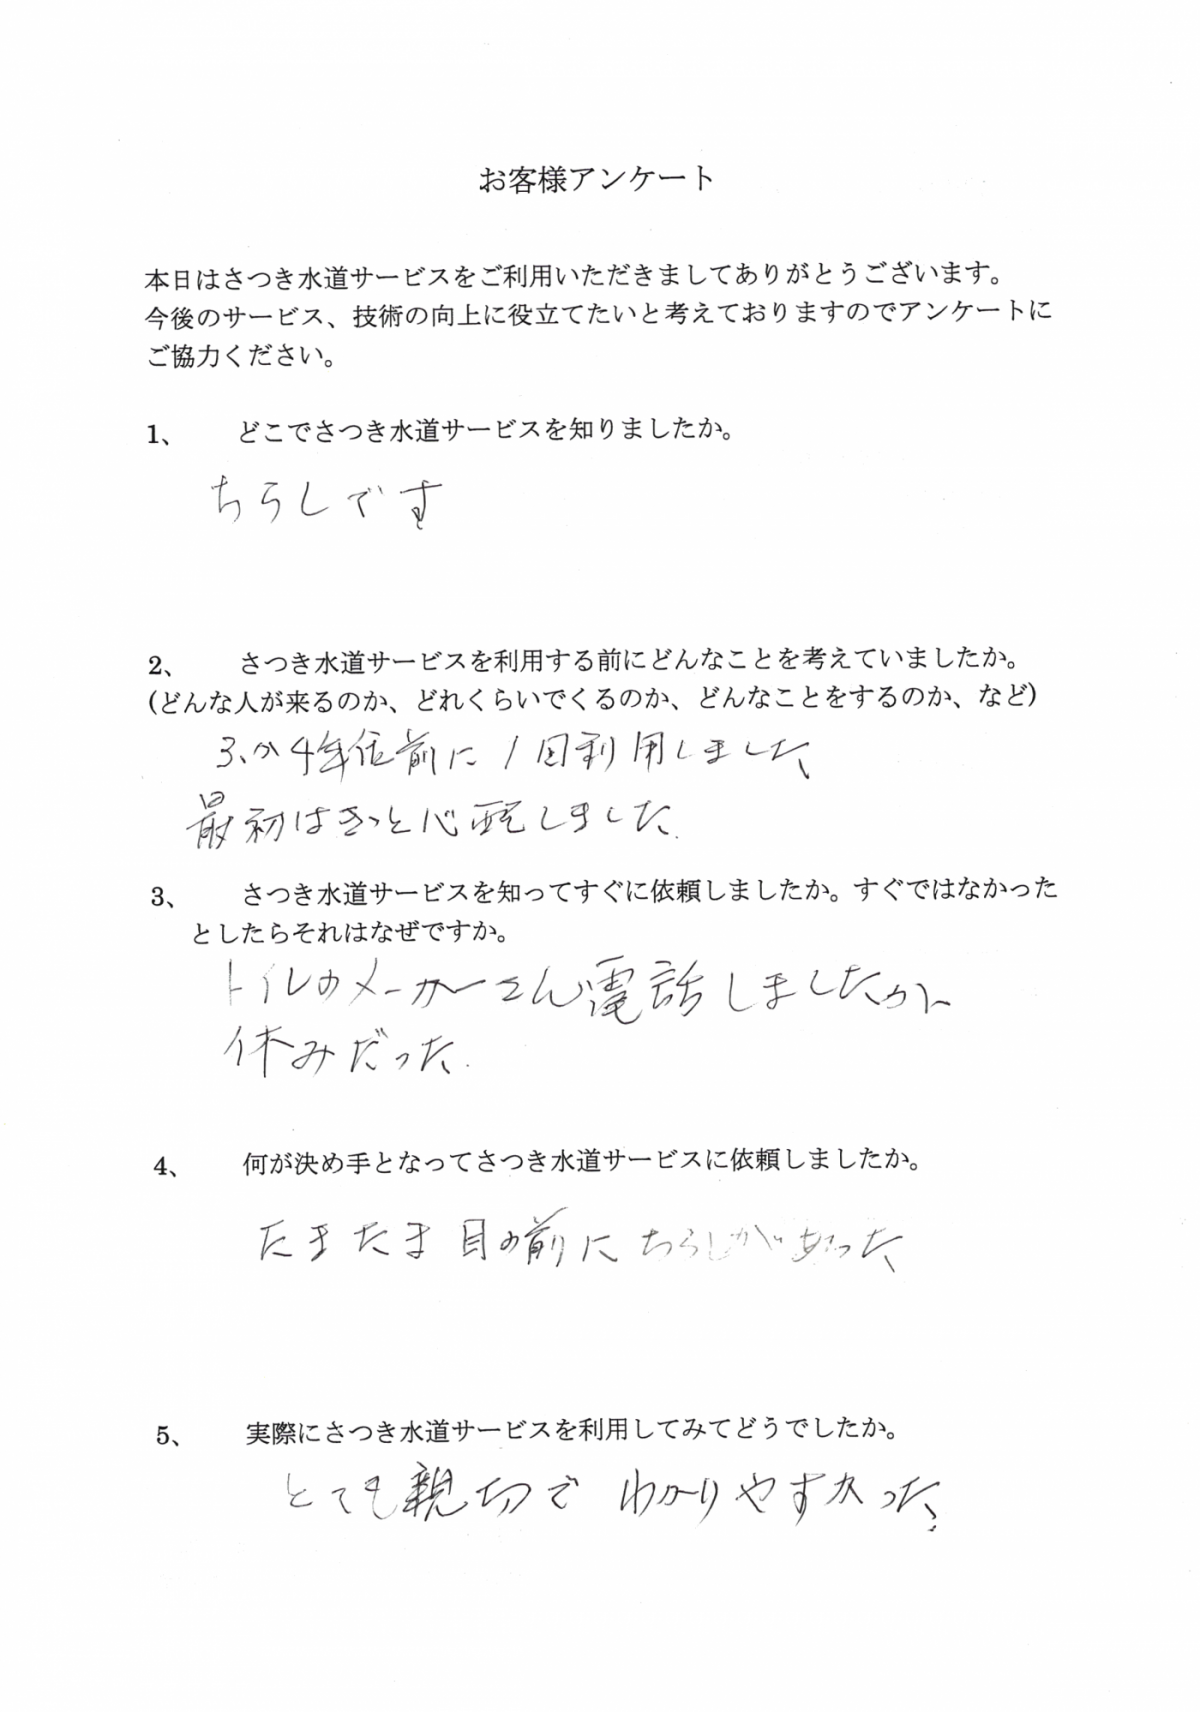 お客様アンケート
本日はさつき水道サービスをご利用いただきましてありがとうございます。
今後のサービス、技術の向上に役立てたいと考えておりますのでアンケートに
ご協力ください。
1、 どこでさつき水道サービスを知りましたか。
ちらしです
2、 さつき水道サービスを利用する前にどんなことを考えていましたか。
(どんな人が来るのか、どれくらいでくるのか、どんなことをするのか、など)
3、か4年位前に1回利用しました
最初はきっと心配しました.
3、 さつき水道サービスを知ってすぐに依頼しましたか。すぐではなかった
としたらそれはなぜですか。
トイレのメーカーさん電話しましたが
休みだった.
4、 何が決め手となってさつき水道サービスに依頼しましたか。
たまたま目の前にちらしがあった
5、 実際にさつき水道サービスを利用してみてどうでしたか。
とても親切で わかりやすかった